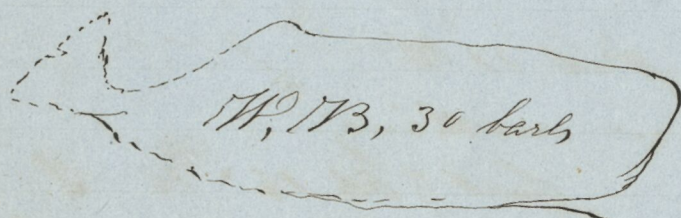 W, B, 30 barls